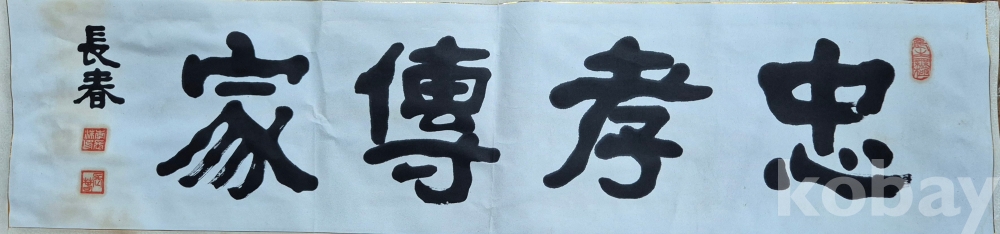 忠孝傳家
長春
kobay